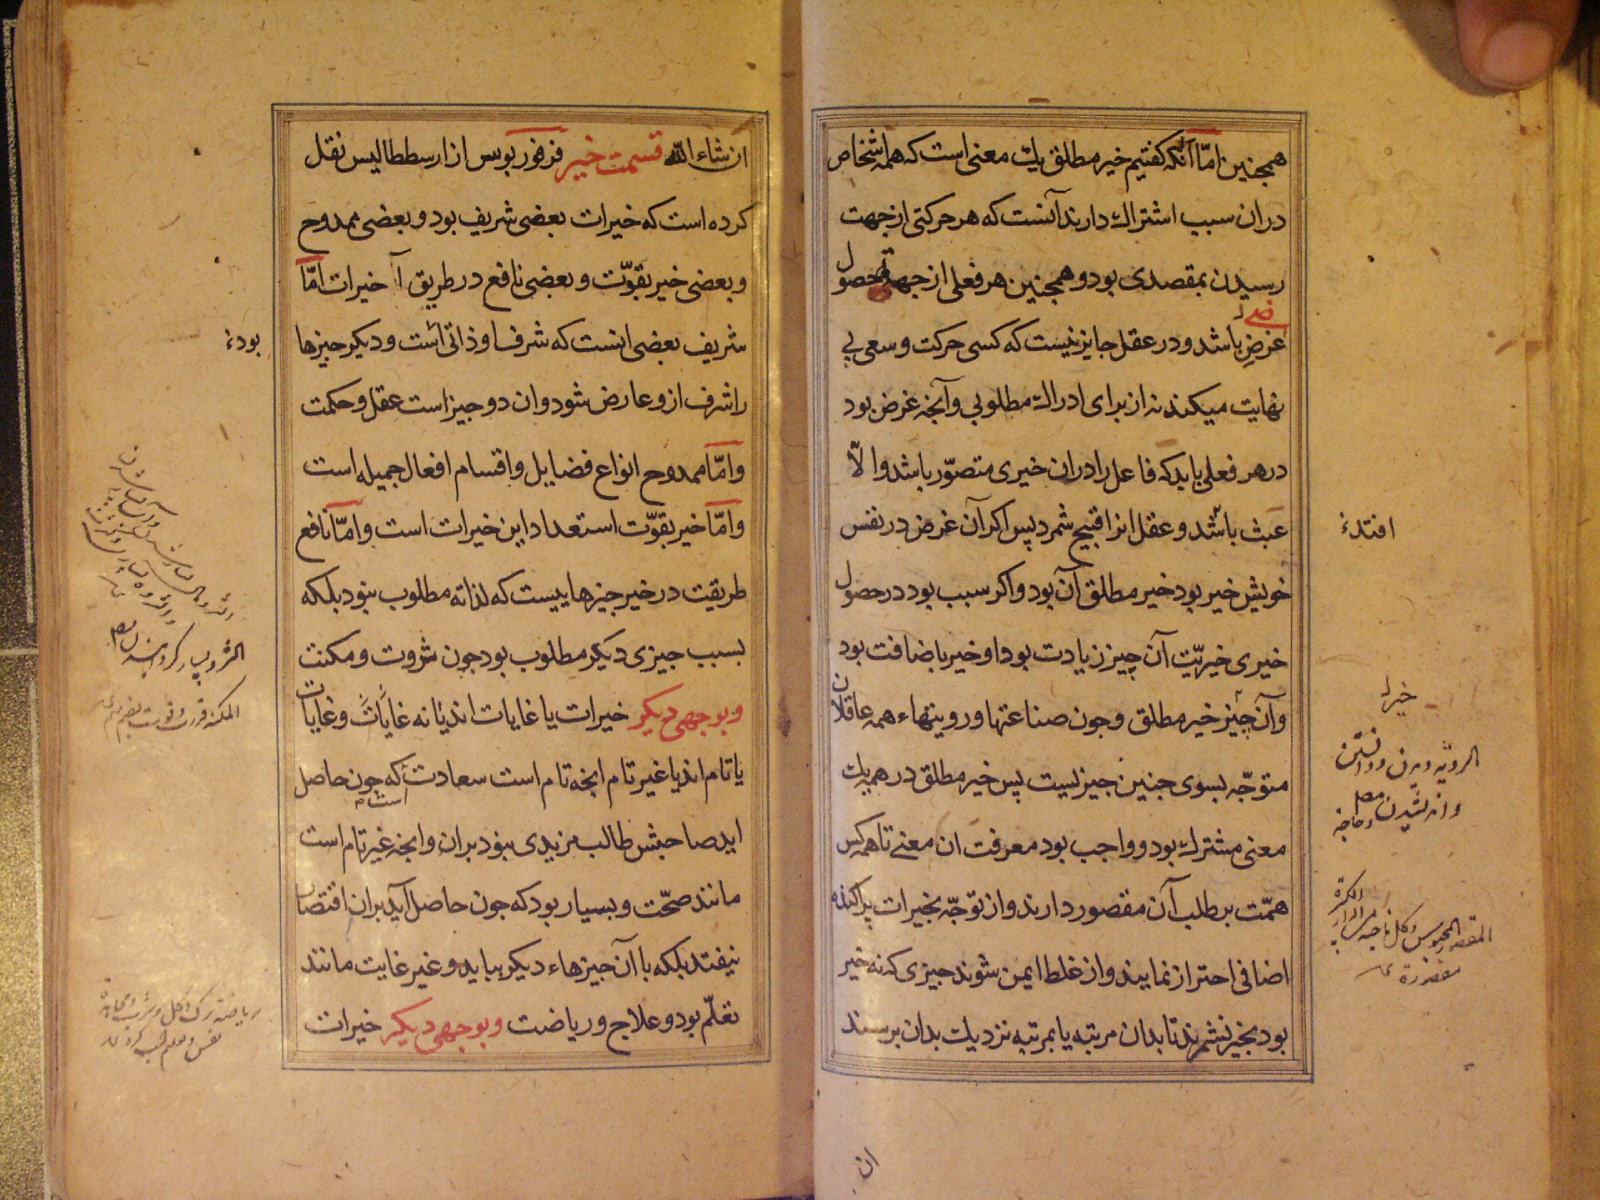 همچنین امّا آنکه کفتیم خیر مطلق یك معنی است که همه اشخاص
دران سبب اشتراك دارند آنست که هر حرکتی از جهت
رسیدن بمقصدی بود و همچنین هر فعلی از جهة حصول
غرضی
غرض باشد و در عقل جایز نیست که کسی حرکت و سعی بی
نهایت میکند نه از برای ادراك مطلوبی و آنچه غرض بود
در هر فعلی باید که فاعل را دران خیری متصوّر باشد والّا
عبث باشد و عقل انرا قبیح شمرد پس اکر آن غرض در نفس
افتدء
خویش خیر بود خیر مطلق آن بود و اکر سبب بود در حصول
خیری خیریّت آن چیز زیادت بود او خیر باضافت بود
وآن چیز خیر مطلق و چون صناعتها و رویتهاء همه عاقلان
خیرا
متوجّه بسوی چنین چیزیست پس خیر مطلق در همه یك
الرویّه دیدن و دانستن
معنی مشترك بود و واجب بود معرفت ان معنی تا همه کس
همّت بر طلب آن مقصور دارند و از توجّه بخیرات پراکنده
اضافی احتراز نمایند و از غلط ایمن شوند چیزی که نه خیر
بود بخیر نشمرند تا بدان مرتبه یا بمرتبه نزدیك بدان برسند
ان
ان شاء الله قسمت خیر فرفوریوس از ارسططالیس نقل
کرده است که خیرات بعضی شریف بود و بعضی ممدوح
و بعضی خیر بقوّت و بعضی نافع در طریق آ خیرات امّا
شریف بعضی انست که شرف او ذاتی است و دیکر چیزها
بودء
را شرف ازو عارض شود وان دو چیز است عقل و حکمت
وامّا ممدوح انواع فضایل و اقسام افعال جمیله است
وامّا خیر بقوّت استعداد این خیرات است وامّا نافع
طریقت در خیر چیزهاییست که لذاته مطلوب نبود بلکه
بسبب چیزی دیکر مطلوب بود چون ثروت و مکنت
و بوجهی دیکر خیرات یا غایات اند یا نه غایات و غایات
یا تام اند یا غیر تام انچه تام است سعادت است که چون حاصل
اید صاحبش طالب مزیدی نبود بران وانچه غیر تام است
مانند صحّت و یسیار بود که چون حاصل آید بران اقتصار
نیفتد بلکه با آن چیزهاء دیکر بباید و غیر غایت مانند
تعلّم بود و علاج و ریاضت و بوجهی دیکر خیرات